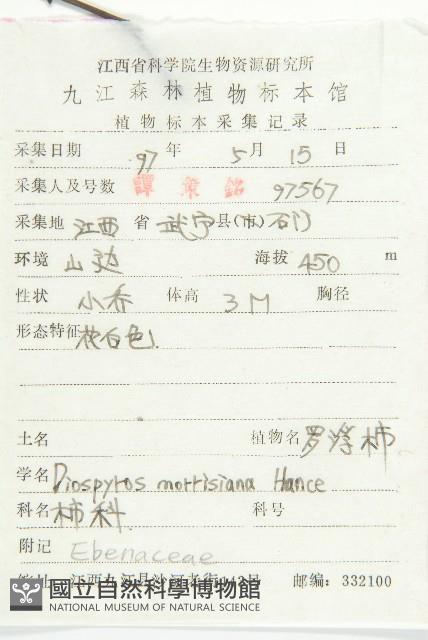 江西省科学院生物资源研究所
九江森林植物标本馆
植物标本采集记录
采集日期 97 年 5 月 15 日
采集人及号数 譚策銘 97567
采集地 江西 省 武宁 县(市) 石门
环境 山边 海拔 450 m
性状 小乔 体高 3M 胸径
形态特征 白色.
土名 植物名 罗浮柿
学名 Diospyros morrisiana Hance
科名 柿科. 科号
附记 Ebenaceae
江西九江县沙河老街 邮编: 332100
國立自然科學博物館
NATIONAL MUSEUM OF NATURAL SCIENCE